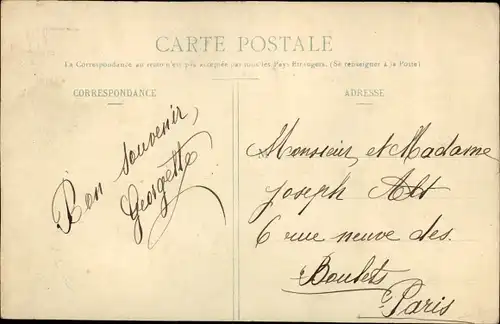 CARTE POSTALE
La Correspondance au recto n'est pas acceptée par tous les Pays Étrangers. (Se renseigner à la Poste)
CORRESPONDANCE
ADRESSE
Bon souvenir,
Georgette
Monsieur et Madame
Joseph Alt
6 rue neuve des
Boulets
Paris